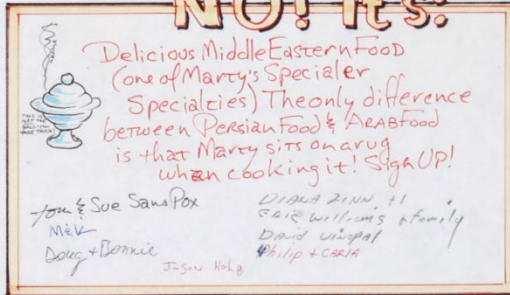 NO! It's:
Delicious Middle Eastern Food
(one of Marty's Specialer
Specialties) The only difference
between Persian Food & Arab Food
is that Marty sits on a rug
when cooking it! Sign UP!
Tom & Sue Sans Pox
Doug + Bonnie
DIANA ZINN, +1
Eric Williams + family
David
Philip + CARLA